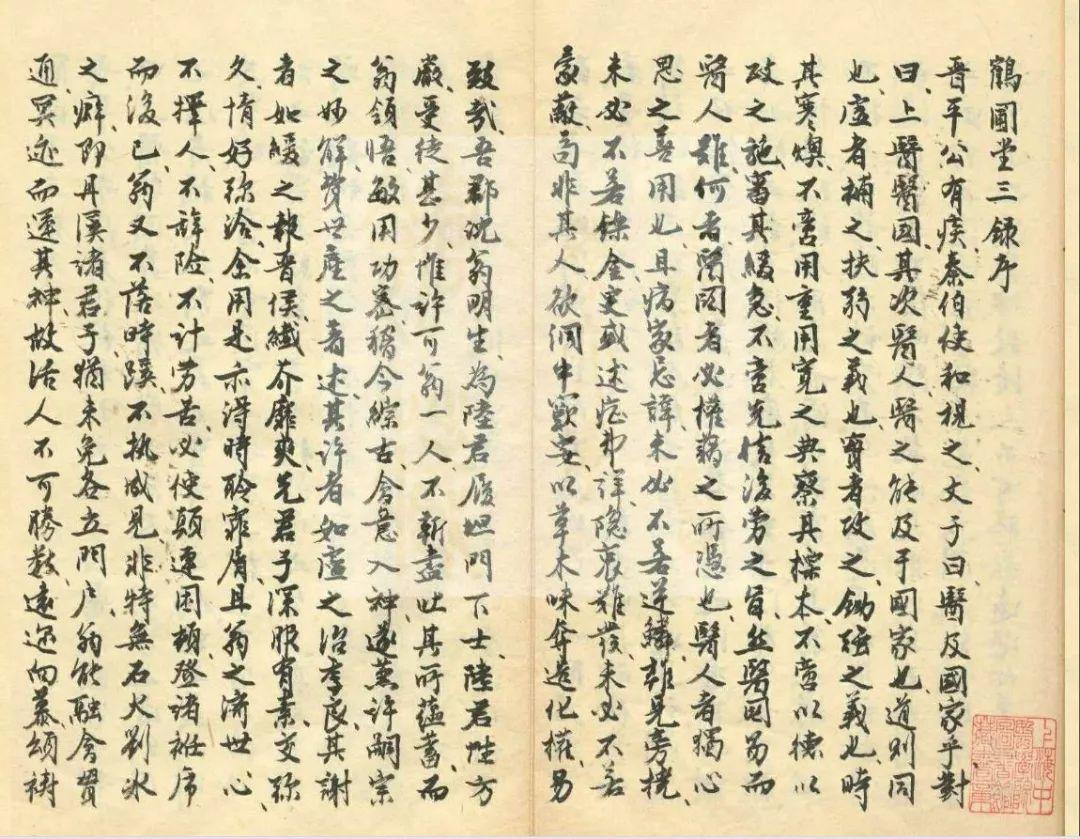 鶴圃堂三錄序
晉平公有疾秦伯使和視之文子曰醫及國家乎對
曰上醫醫國其次醫人醫之能及于國家也道則同
也虛者補之扶弱之義也實者攻之鋤强之義也時
其寒燠不啻用重用寬之典察其標本不啻以德以
政之施審其緩急不啻先情後勞之旨然醫國易而
醫人難何者醫國者必權藉之所憑也醫人者獨心
思之善用也且病家忌諱未必不若逆鱗雜見旁撓
未必不若鑠金更或述症弗詳隱衷難發未必不若
蒙蔽苟非其人欲調中竅妄以草木味奪造化權易
致哉吾郡沈翁明生為陸君履坦門下士陸君性方
嚴受徒甚少惟許可翁一人不靳盡吐其所蘊蓄而
翁領悟敏用功密稽今綜古會意入神遂兼許嗣宗
之妙解焉世虛之者述其許者如盧之治李良其謝
者如緩之報晉侯纖芥靡爽先君子深服有素交弥
久情好弥洽余用是亦得時聆霏屑且翁之濟世心
不擇人不辭險不計勞苦必使顛連困頓登諸袵席
而後已翁又不落時蹊不执成見非特無石火劉冰
之癖即丹溪諸君子猶未免各立門户翁能融會貫
通冥迹而運其神故活人不可勝數遠迩向慕頌禱